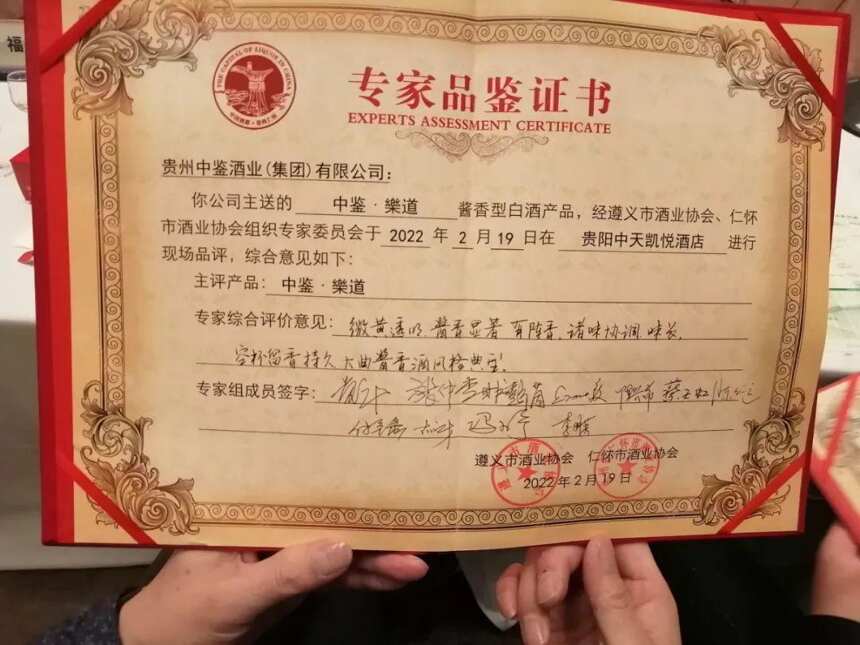 福
THE CAPITAL OF LIQUOR IN CHINA
专家品鉴证书
EXPERTS ASSESSMENT CERTIFICATE
贵州中鉴酒业(集团)有限公司:
你公司主送的 中鉴·樂道 酱香型白酒产品,经遵义市酒业协会、仁怀
市酒业协会组织专家委员会于2022年2月19日在 贵阳中天凯悦酒店 进行
现场品评,综合意见如下:
主评产品:中鉴·樂道
专家综合评价意见:微黄透明,酱香显著,有陈香,诸味协调,味长,
空杯留香持久,大曲酱香酒风格典型。
专家组成员签字:
遵义市酒业协会 仁怀市酒业协会
2022年2月19日